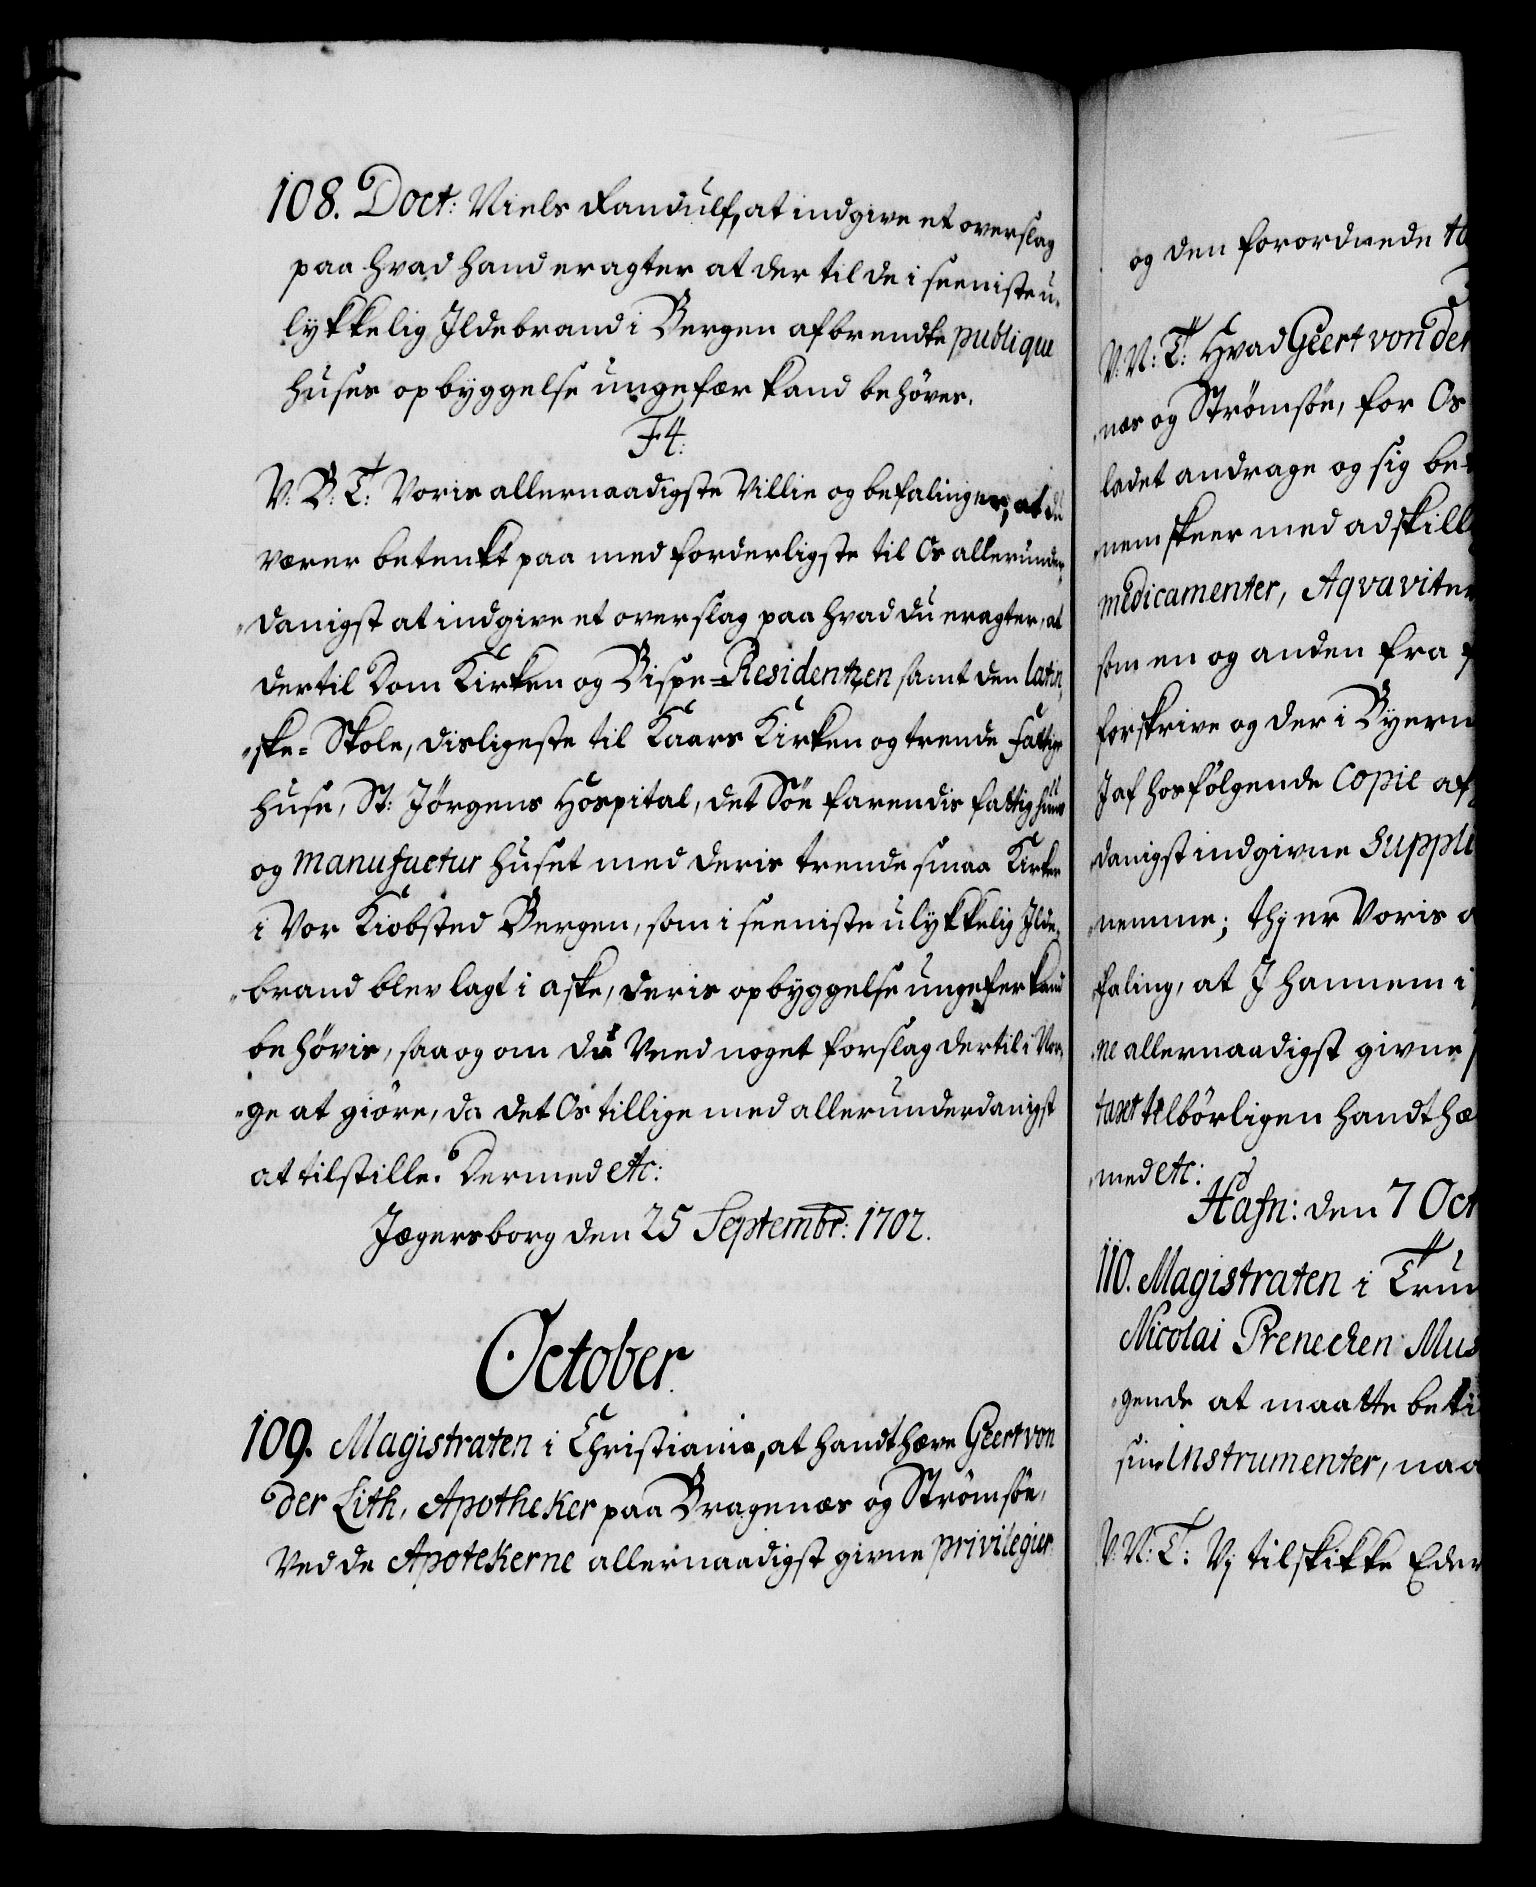 108. Doct: Niels Randulf, at indgive et overslag
paa hvad hand eragter at der til de i seeniste u-
lykkelig Ildebrand i Bergen afbrendte publique
huses opbyggelse ungefær kand behøves.
F4.
V: B: T: Voris allernaadigste Villie og befalinger, at du
værer betenkt paa med forderligste til Os allerunder-
danigst at indgive et overslag paa hvad du eragter, at
dertil Dom Kirken og Bispe-Residentzen samt den latin-
ske-Skole, disligeste til Kaars Kirken og trende Fattige
huse, St: Jörgens Hospital, det Söe farendis fattig huus
og manufactur huset med deris trende smaa Kirker
i Vor Kiöbsted Bergen, som i seeniste ulykkelig Ilde-
brand blev lagt i aske, deris opbyggelse ungefer kand
behövis, saa og om du Veed noget forslag dertil i Nor-
ge at giöre, da det Os tillige med allerunderdanigst
at tilstille. Dermed etc:
Jægersborg den 25 Septembr: 1702.
October.
109. Magistraten i Christiania, at handthæve Geert von
der Lith, Apotheker paa Bragenæs og Strömsöe,
Ved de Apotekerne allernaadigst givne privilegier
og den forordnede ta
V: N: T: Hvad Geert von der
næs og Strömsöe, for Os
ladet andrage og sig be-
nem skeer med adskill
medicamenter, Aqvaviter
som en og anden fra
forskrive og der i Byern
I af hosfölgende Copie af
danigst indgivne Suppli
nemme; thj er Voris a
faling, at I hannem i
ne allernaadigst givne
taxt tilbörligen handthæ
med etc:
Hafn: den 7 Oct
110. Magistraten i Trun
Nicolai Prenechen Mus
gende at maatte beti
sine Instrumenter, naa
V: N: T: Vj tilskikke Eder